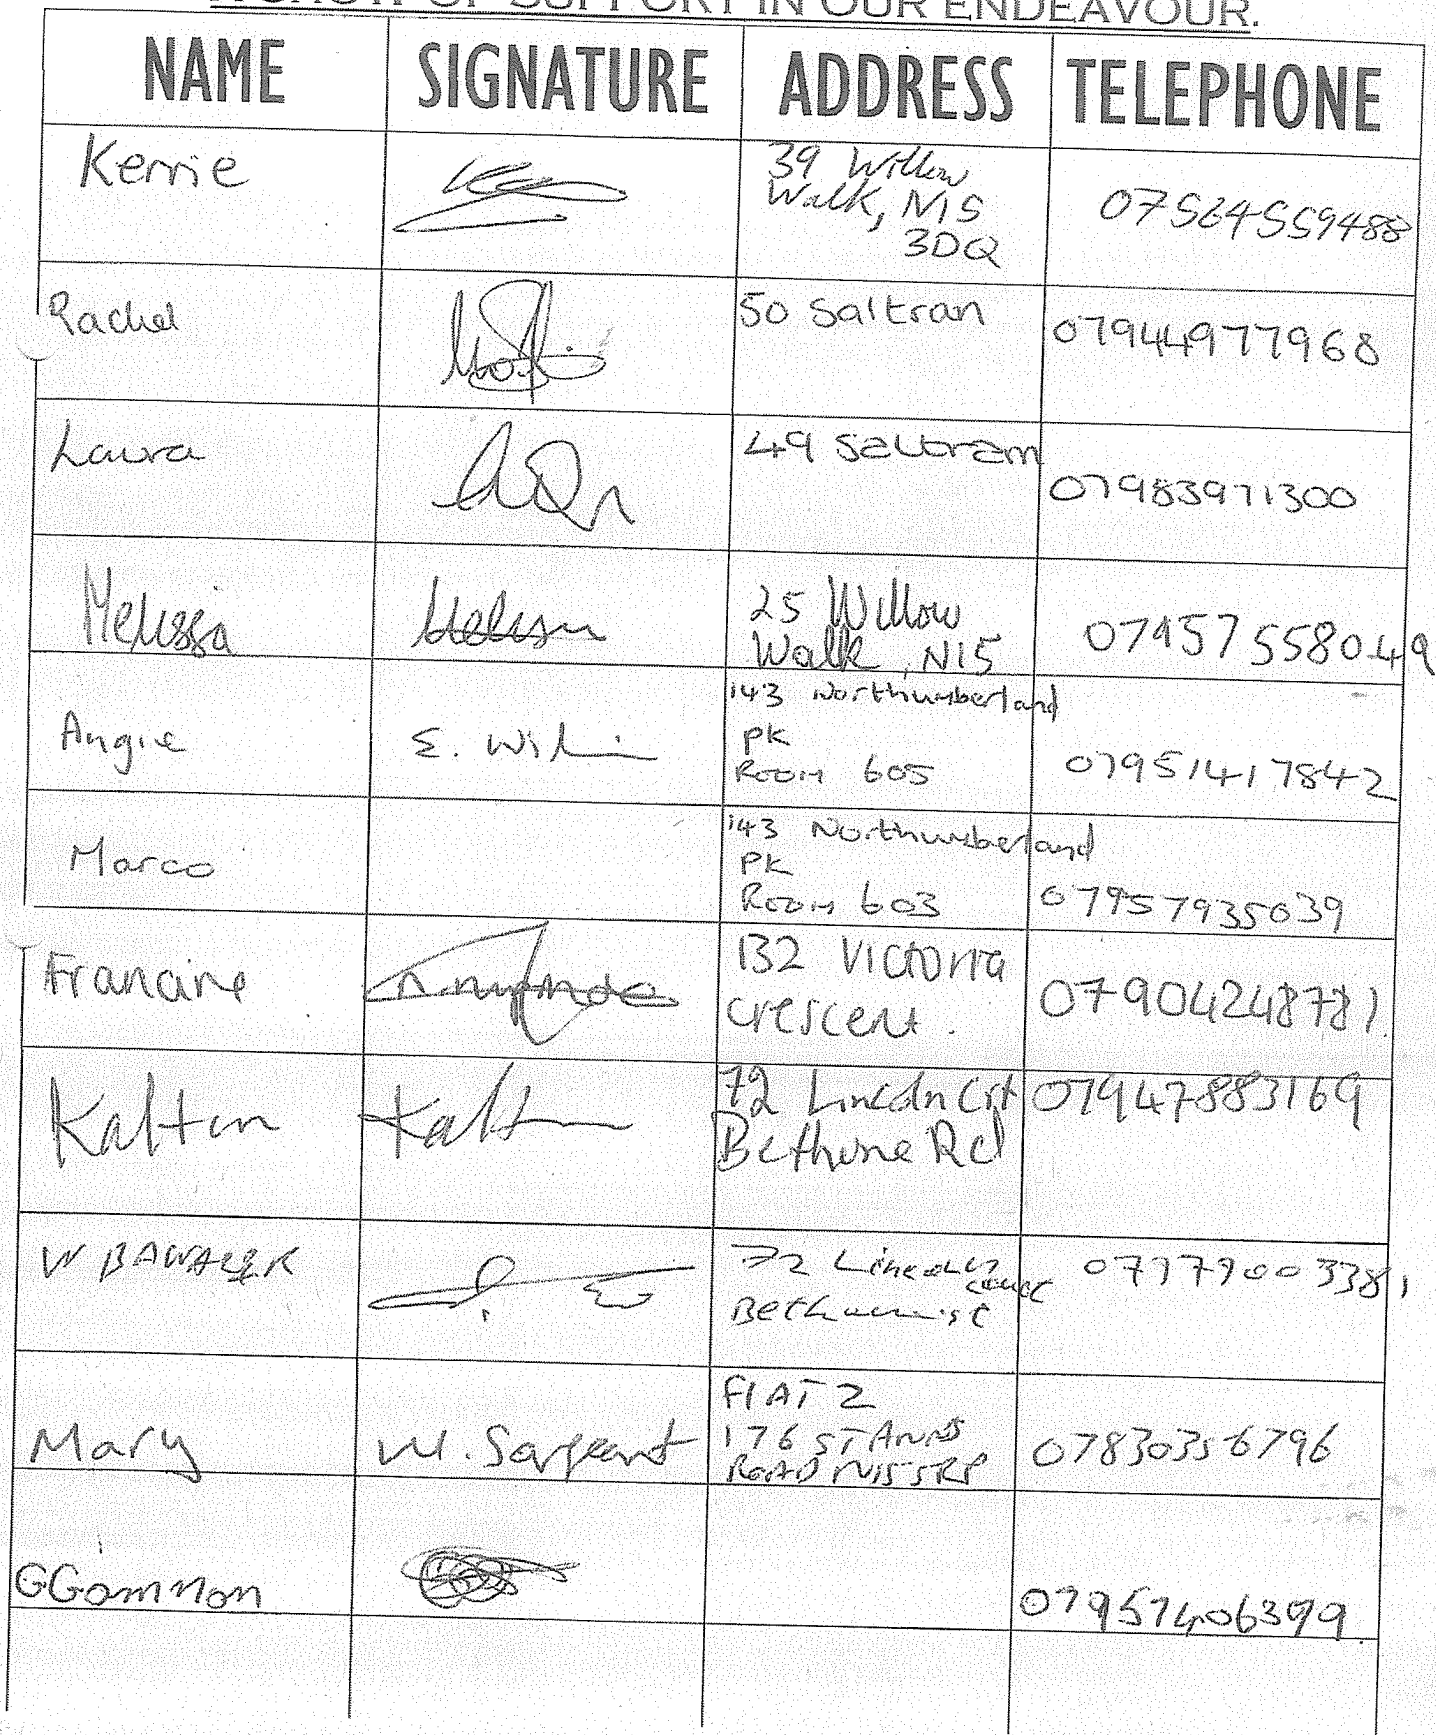 OF SUPPORT IN OUR ENDEAVOUR.
NAME SIGNATURE ADDRESS TELEPHONE
Kerrie 39 Willow
Walk, N15
3DQ
07564559488
Rachel 50 Saltran 07944977968
Laura 49 Saltram 07983971300
Melissa Melissa 25 Willow
Walk, N15
07957558049
Angie E. 143 Northumberland
PK
Room 605
07951417842
Marco 143 Northumberland
PK
Room 603
07957935039
Francine 132 Victoria
Crescent.
07904248781.
72 Lincoln Crt
Bethune Rd
07947883169
W 72 Lincoln
Court
07979003381
Mary M. Sargeant FLAT 2
176 ST ANNS
ROAD N15 5RP
07830356796
GGammon 07957406399